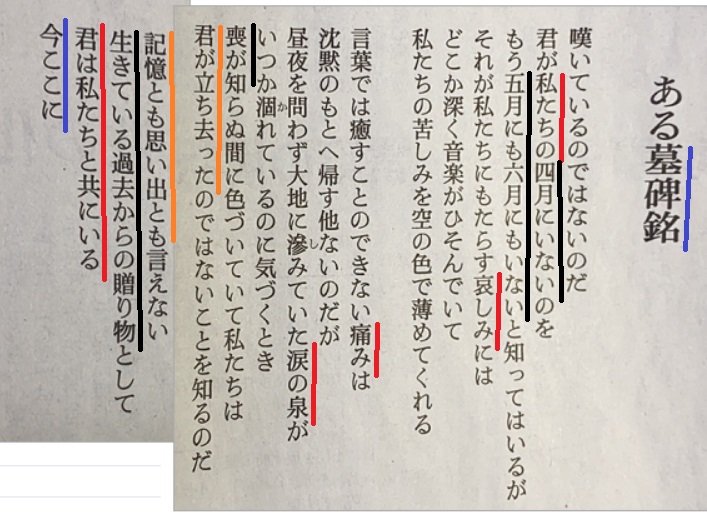 ある墓碑銘
嘆いているのではないのだ
君が私たちの四月にいないのを
もう五月にも六月にもいないと知ってはいるが
それが私たちにもたらす哀しみには
どこか深く音楽がひそんでいて
私たちの苦しみを空の色で薄めてくれる
言葉では癒すことのできない痛みは
沈黙のもとへ帰す他ないのだが
し
昼夜を問わず大地に滲みていた涙の泉が
か
いつか涸れているのに気づくとき
喪が知らぬ間に色づいていて私たちは
君が立ち去ったのではないことを知るのだ
記憶とも思い出とも言えない
生きている過去からの贈り物として
君は私たちと共にいる
今ここに